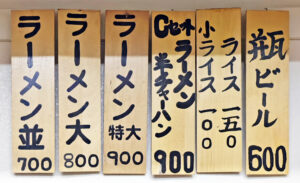 ラーメン並
700
ラーメン大
800
ラーメン特大
900
Cセット
ラーメン
半チャーハン
900
小ライス 一〇〇
ライス 一五〇
瓶ビール
600